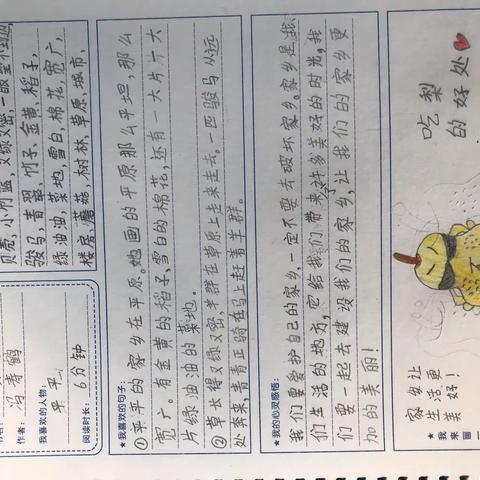 作者:
冯寿鹤
我喜欢的人物:
平平
阅读时长:
6分钟
贝壳,小竹篮,又绿又密,一眼望不到边
骏马,青翠,竹子,金黄,稻子,
绿油油,菜地,雪白,棉花,宽广,
楼房,蘑菇,树林,草原,城市,
★我喜欢的句子:
①平平的家乡在平原。她画的平原那么平坦,那么
宽广。有金黄的稻子,雪白的棉花,还有一大片一大
片绿油油的菜地。
②草长得又绿又密,羊群在草原上走来走去。一匹骏马从远
处奔来,青青正骑在马上赶着羊群。
★我的心灵感悟:
我们要爱护自己的家乡,一定不要去破坏家乡。家乡是我
们生活的地方,它给我们带来许多美好的时光,我
们要一起去建设我们的家乡,让我们的家乡更
加的美丽!
★我来画一
家乡让
生活更
美好!
吃梨
的好处